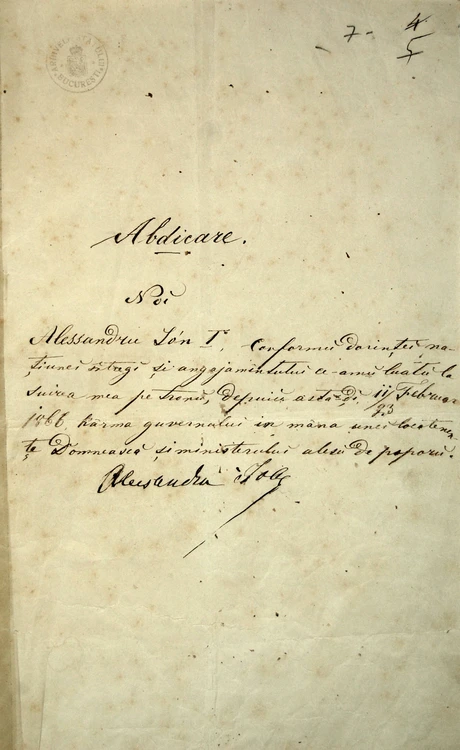 7- 4
5
BUCURESTI
Abdicare.
Noi
Alessandru Ión I, Conformŭ dorinței na-
țiunei întregi și angajamentului ce-amŭ luatŭ la
suirea mea pe tronŭ, depuiŭ astă-di, 11/23 Februar
1866 kârma guvernului in mâna unei locotenen-
te Domnească și ministerului alesŭ de poporŭ.
Alessandru Ioan